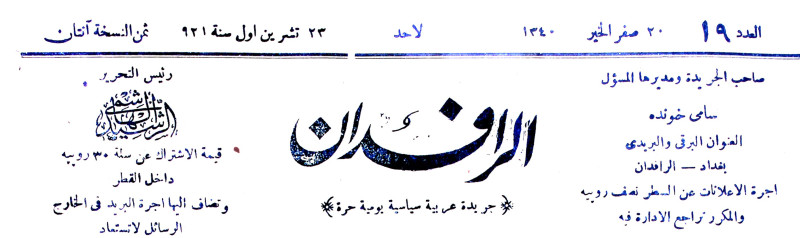 العدد ١٩ ٢٠ صفر الخير ١٣٤٠ لاحد ٢٣ تشرين اول سنة ٩٢١ ثمن النسخة آنتان
صاحب الجريدة ومديرها المسؤل
سامى خونده
العنوان البرقى والبريدى
بغداد — الرافدان
اجرة الاعلانات عن السطر نصف روبيه
والمكرر تراجع الادارة فيه
الرافدان
جريدة عربية سياسية يومية حرة
رئيس التحرير
الرشيد الهاشمى
قيمة الاشتراك عن سنة ٣٠ روبيه
داخل القطر
وتضاف اليها اجرة البريد فى الخارج
الرسائل لاتستعاد